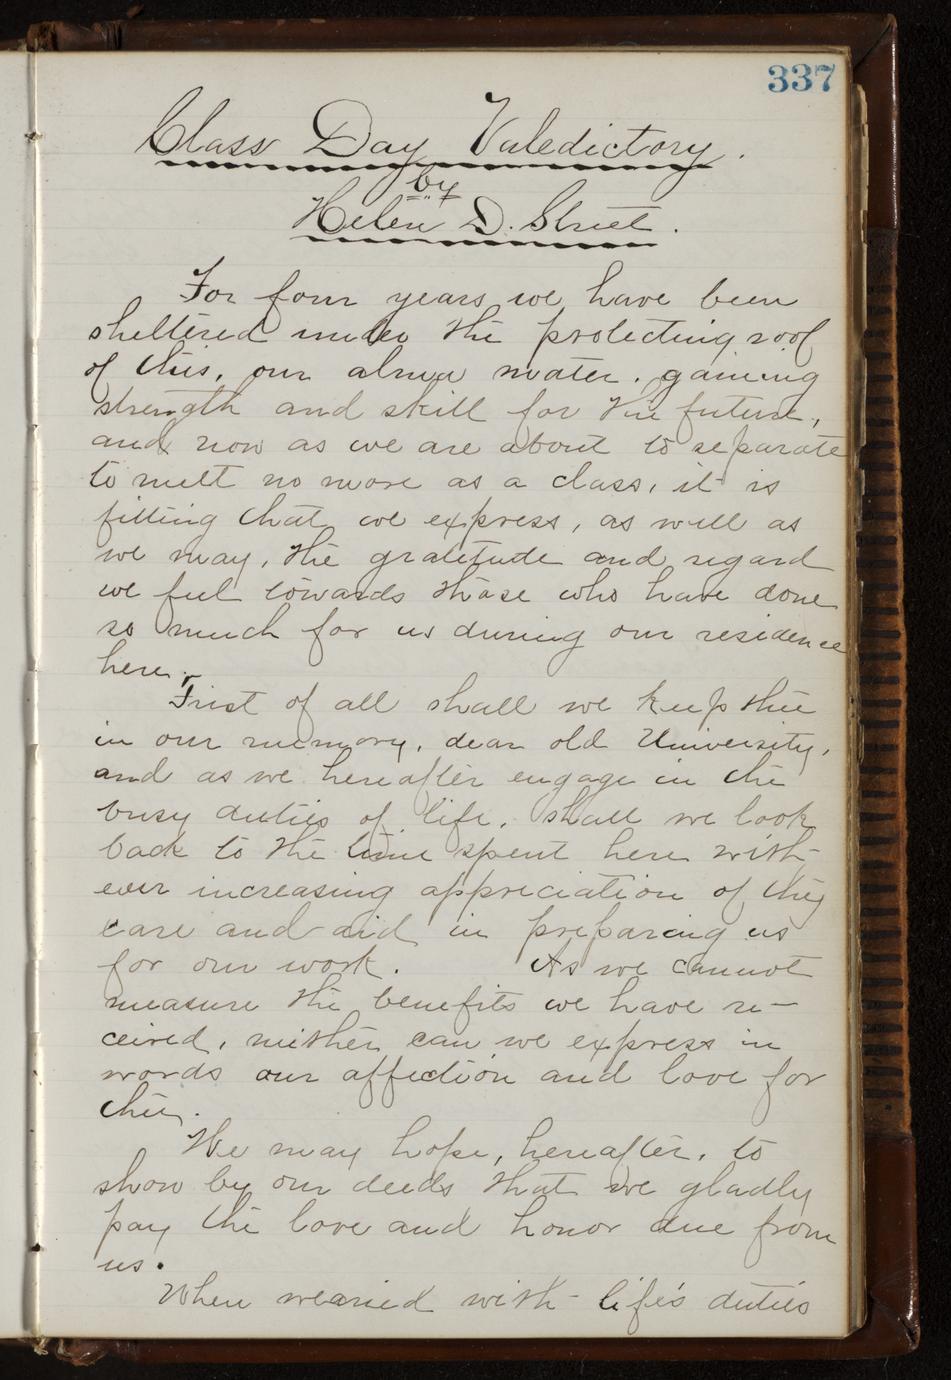 337
Class Day Valedictory.
by
Helen D. Street.
For four years we have been
sheltered under the protecting roof
of this, our alma mater, gaining
strength and skill for the future,
and now as we are about to separate
to meet no more as a class, it is
fitting that we express, as well as
we may, the gratitude and regard
we feel towards those who have done
so much for us during our residence
here.
First of all shall we keep thee
in our memory, dear old University,
and as we hereafter engage in the
busy duties of life, shall we look
back to the time spent here with
ever increasing appreciation of thy
care and aid in preparing us
for our work. As we cannot
measure the benefits we have re-
ceived, neither can we express in
words our affection and love for
thee.
We may hope, hereafter, to
show by our deeds that we gladly
pay the love and honor due from
us.
When wearied with life's duties